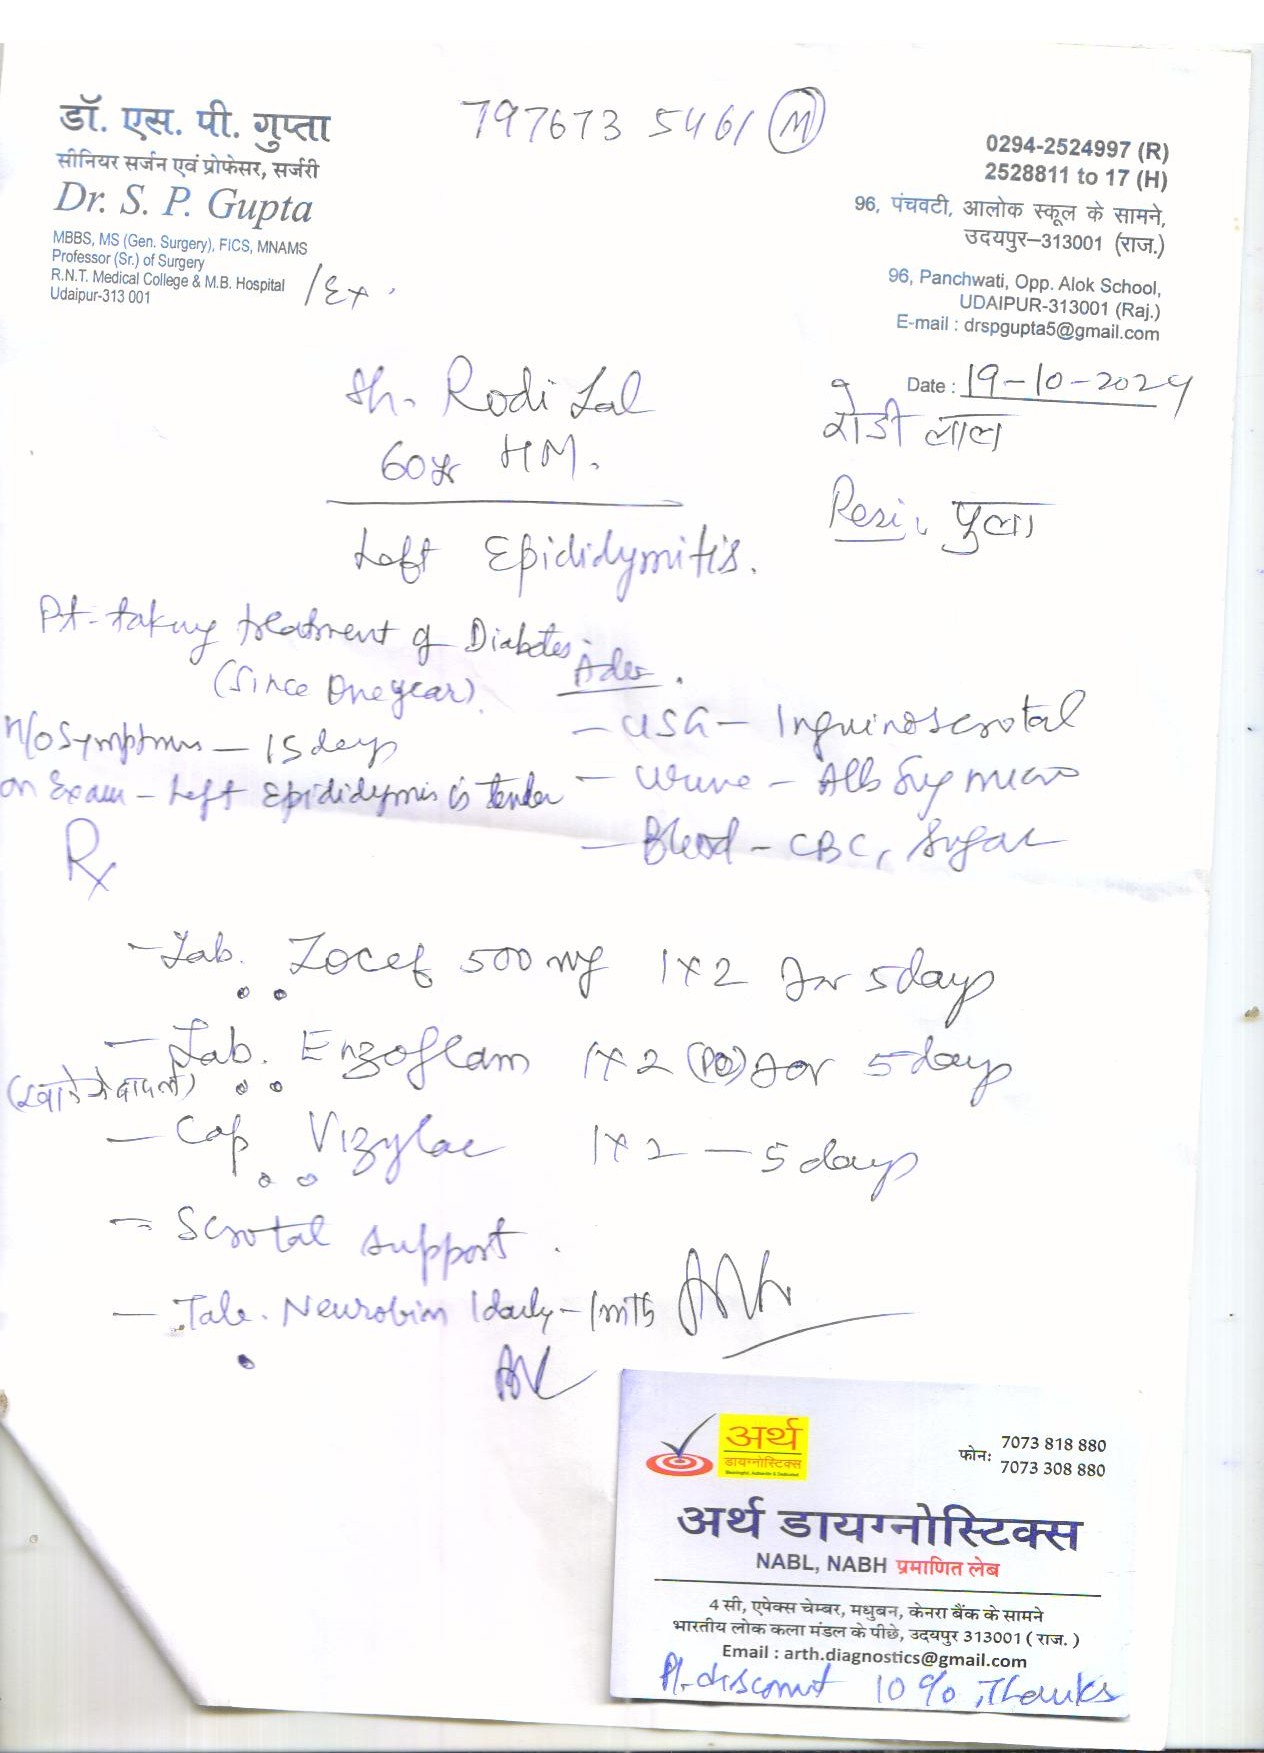 797673 5461 (M)
डॉ. एस. पी. गुप्ता
सीनियर सर्जन एवं प्रोफेसर, सर्जरी
Dr. S. P. Gupta
MBBS, MS (Gen. Surgery), FICS, MNAMS
Professor (Sr.) of Surgery
R.N.T. Medical College & M.B. Hospital
Udaipur-313 001
/Ex.
0294-2524997 (R)
2528811 to 17 (H)
96, पंचवटी, आलोक स्कूल के सामने,
उदयपुर–313001 (राज.)
96, Panchwati, Opp. Alok School,
UDAIPUR-313001 (Raj.)
E-mail : drspgupta5@gmail.com
Date : 19-10-2024
Sh. Rodi Lal
रोडी लाल
60yr HM.
Resi: पुला
Left Epididymitis.
Pt. taking treatment of Diabetes
(Since One year).
H/o Symptoms – 15 days
on Exam – Left Epididymis is tender
Adv.
– USG – Inguinoscrotal
– Urine – Alb Sug micro
– Blood – CBC, Sugar
Rx
– Tab. Zocef 500 mg 1x2 for 5 days
– Tab. Enzoflam 1x2 (PO) for 5 days
(खाने के बाद लें)
– Cap. Vizylac 1x2 – 5 days
– Scrotal support.
– Tab. Neurobin 1 daily – 1 mth
अर्थ
डायग्नोस्टिक्स
फोन: 7073 818 880
7073 308 880
अर्थ डायग्नोस्टिक्स
NABL, NABH प्रमाणित लेब
4 सी, एपेक्स चेम्बर, मधुबन, केनरा बैंक के सामने
भारतीय लोक कला मंडल के पीछे, उदयपुर 313001 ( राज. )
Email : arth.diagnostics@gmail.com
Pl. discount 10%, Thanks